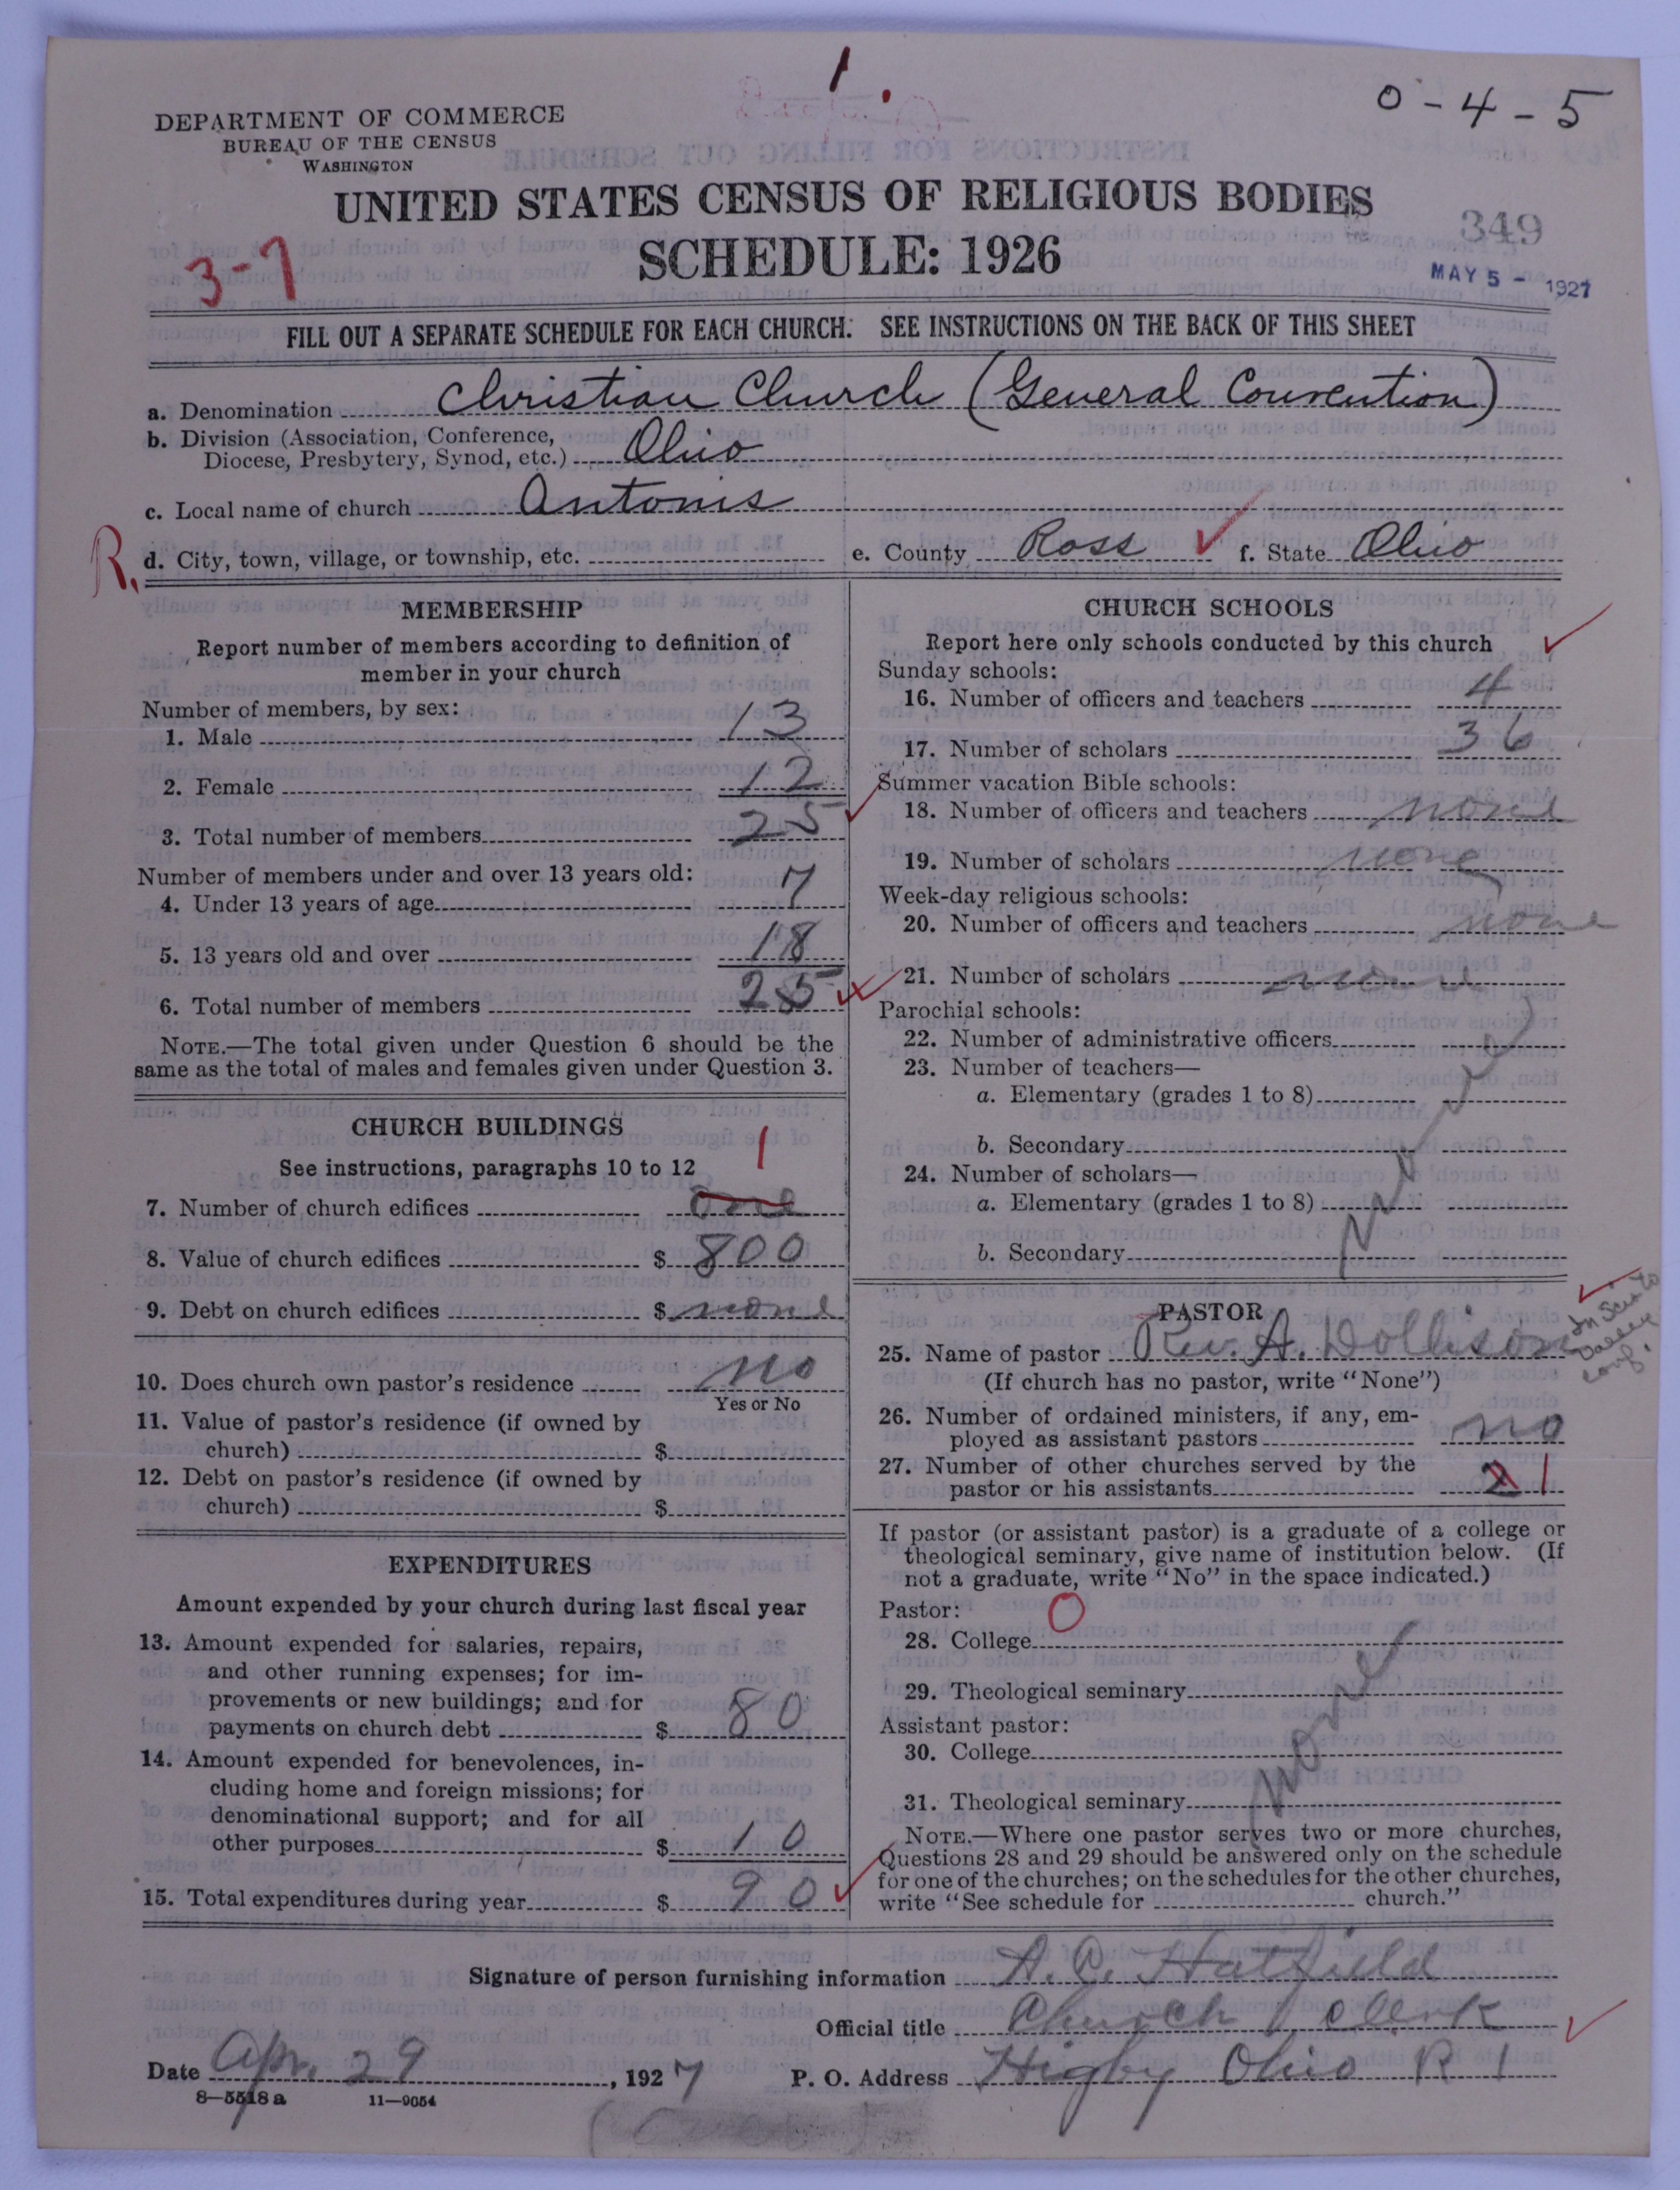 1.
0-4-5
DEPARTMENT OF COMMERCE
BUREAU OF THE CENSUS
WASHINGTON
UNITED STATES CENSUS OF RELIGIOUS BODIES
349
SCHEDULE: 1926
3-7
MAY 5 - 1927
FILL OUT A SEPARATE SCHEDULE FOR EACH CHURCH. SEE INSTRUCTIONS ON THE BACK OF THIS SHEET
a. Denomination Christian Church (General Convention)
b. Division (Association, Conference,
Diocese, Presbytery, Synod, etc.) Ohio
c. Local name of church Antonis
R. d. City, town, village, or township, etc. e. County Ross f. State Ohio
MEMBERSHIP
Report number of members according to definition of
member in your church
Number of members, by sex:
1. Male 13
2. Female 12
3. Total number of members 25
Number of members under and over 13 years old:
4. Under 13 years of age 7
5. 13 years old and over 18
6. Total number of members 25
NOTE.—The total given under Question 6 should be the
same as the total of males and females given under Question 3.
CHURCH BUILDINGS
See instructions, paragraphs 10 to 12 1
7. Number of church edifices one
8. Value of church edifices $ 800
9. Debt on church edifices $ none
10. Does church own pastor's residence no
Yes or No
11. Value of pastor's residence (if owned by
church) $
12. Debt on pastor's residence (if owned by
church) $
EXPENDITURES
Amount expended by your church during last fiscal year
13. Amount expended for salaries, repairs,
and other running expenses; for im-
provements or new buildings; and for
payments on church debt $ 80
14. Amount expended for benevolences, in-
cluding home and foreign missions; for
denominational support; and for all
other purposes $ 10
15. Total expenditures during year $ 90
CHURCH SCHOOLS
Report here only schools conducted by this church
Sunday schools:
16. Number of officers and teachers 4
17. Number of scholars 36
Summer vacation Bible schools:
18. Number of officers and teachers none
19. Number of scholars none
Week-day religious schools:
20. Number of officers and teachers none
21. Number of scholars none
Parochial schools:
22. Number of administrative officers
23. Number of teachers—
a. Elementary (grades 1 to 8)
b. Secondary
24. Number of scholars—
a. Elementary (grades 1 to 8)
b. Secondary
PASTOR
25. Name of pastor Rev. A. Dollison
(If church has no pastor, write "None")
26. Number of ordained ministers, if any, em-
ployed as assistant pastors no
27. Number of other churches served by the
pastor or his assistants 2 1
If pastor (or assistant pastor) is a graduate of a college or
theological seminary, give name of institution below. (If
not a graduate, write "No" in the space indicated.)
Pastor: O
28. College
29. Theological seminary
none
Assistant pastor:
30. College
31. Theological seminary
NOTE.—Where one pastor serves two or more churches,
Questions 28 and 29 should be answered only on the schedule
for one of the churches; on the schedules for the other churches,
write "See schedule for church."
Signature of person furnishing information A. C. Hatfield
Official title Church Clerk
Date Apr. 29, 1927 P. O. Address Higby Ohio R 1
8—5518 a 11—9054